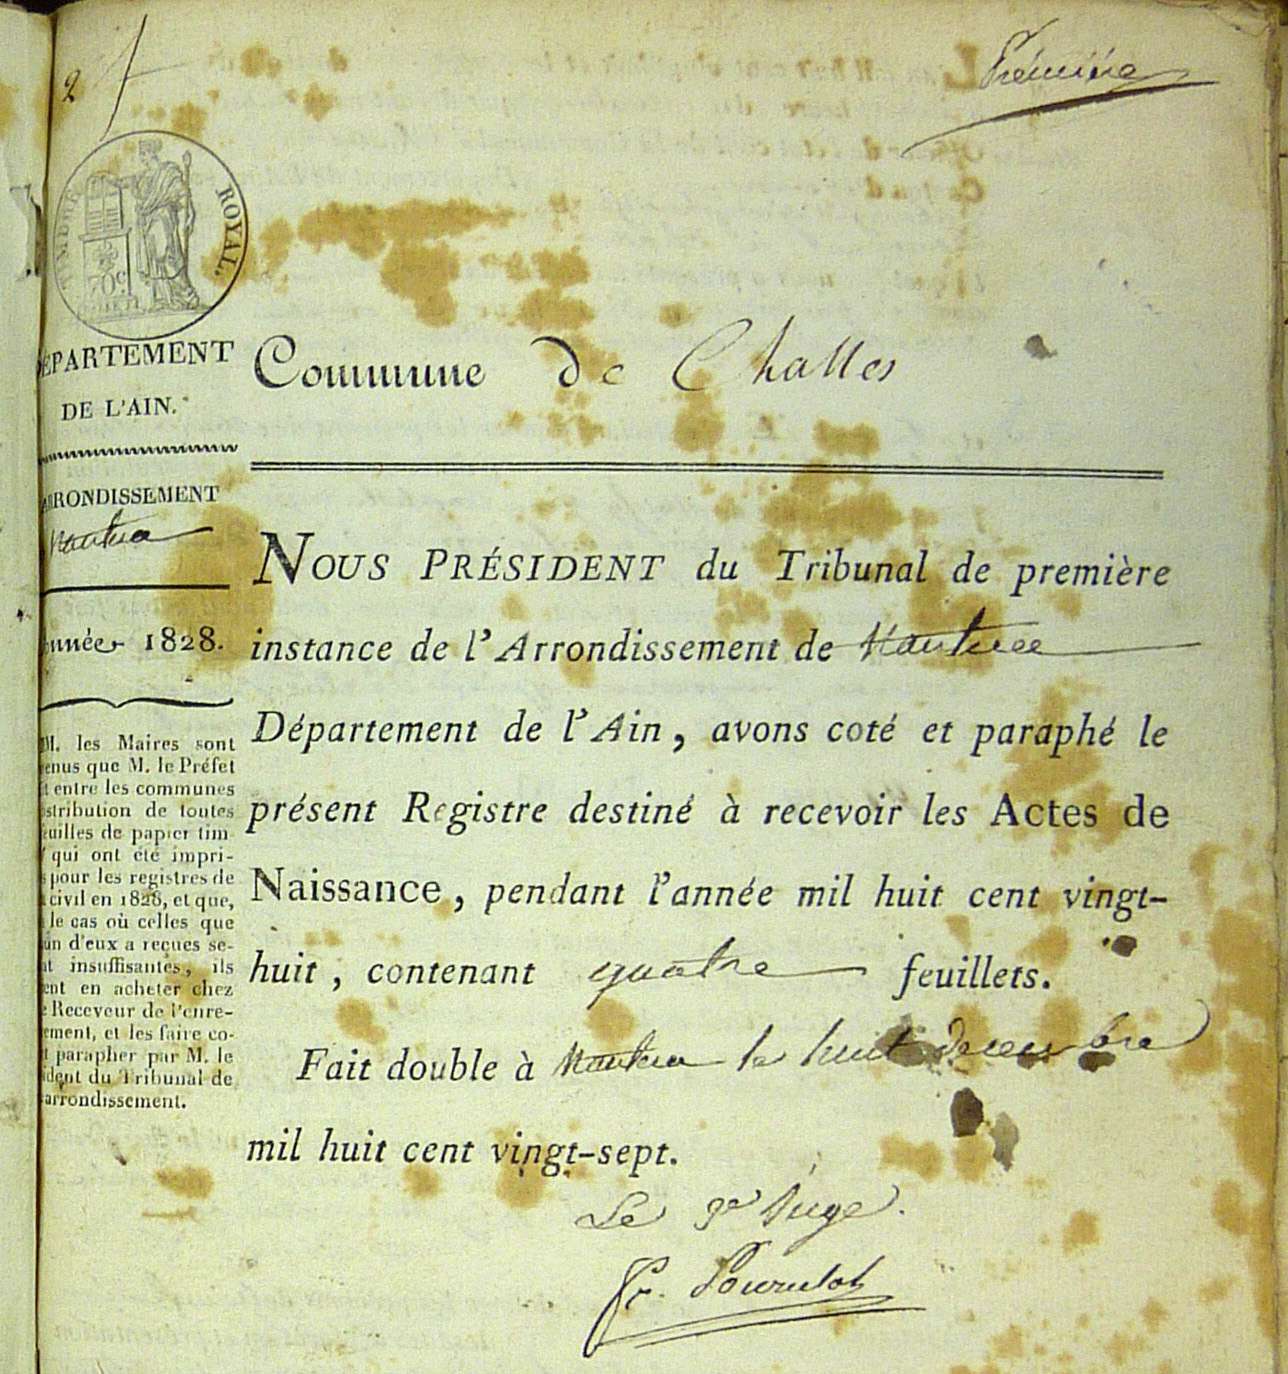 2
Première
TIMBRE ROYAL.
70c
DÉPARTEMENT
DE L'AIN.
Commune de Challes
ARRONDISSEMENT
Nantua
Année 1828.
NOUS PRÉSIDENT du Tribunal de première
instance de l'Arrondissement de Nantua
Département de l'Ain, avons coté et paraphé le
présent Registre destiné à recevoir les Actes de
Naissance, pendant l'année mil huit cent vingt-
huit, contenant quatre feuillets.
Fait double à Nantua le huit decembre
mil huit cent vingt-sept.
Le Juge.
M. les Maires sont
enus que M. le Préfet
t entre les communes
stribution de toutes
euilles de papier tim-
qui ont été impri-
pour les registres de
civil en 1828, et que,
le cas où celles que
un d'eux a reçues se-
nt insuffisantes, ils
ent en acheter chez
e Receveur de l'enre-
ement, et les faire co-
t parapher par M. le
ident du Tribunal de
arrondissement.